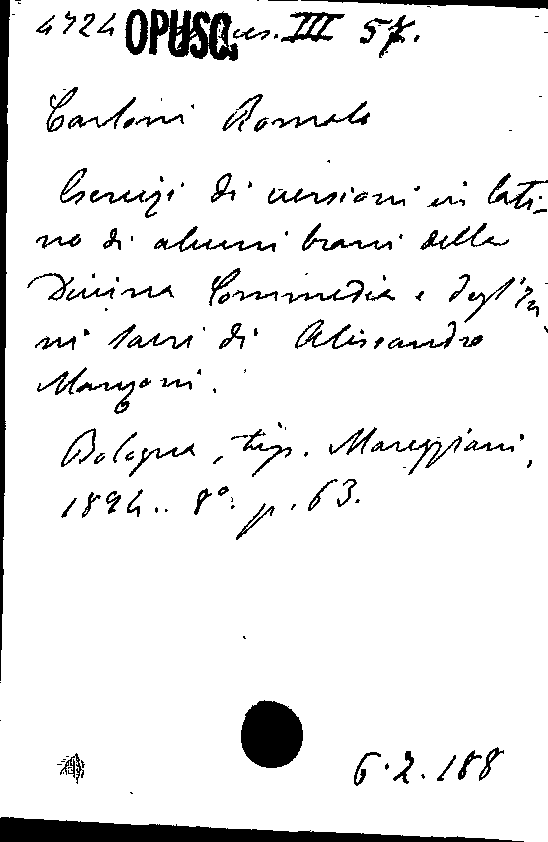 4724 OPUSC. III 57.
Carloni Romolo
Esercizi di versioni in lati-
no di alcuni brani della
Divina Commedia e degl'In-
ni sacri di Alessandro
Manzoni.
Bologna, tip. Mareggiani,
1894.. 8º. p. 63.
6.2.188